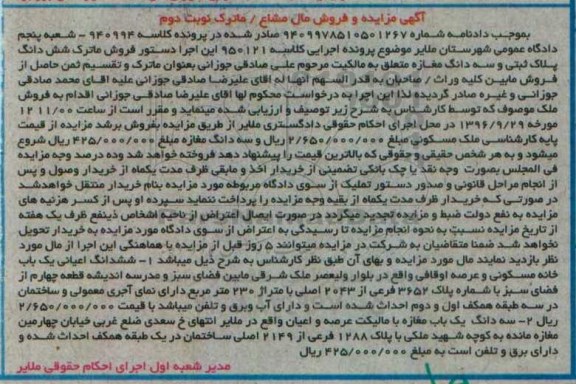 آگهی مزایده و فروش مال مشاع / ماترک نوبت دوم
بموجب دادنامه شماره ۹۴۰۹۹۷۸۵۱۰۵۰۱۲۶۷ صادر شده در پرونده کلاسه ۹۴۰۹۹۴ – شعبه پنجم
دادگاه عمومی شهرستان ملایر موضوع پرونده اجرایی کلاسه ۹۵۰۱۲۱ این اجرا دستور فروش ماترک شش دانگ
پلاک ثبتی و سه دانگ مغازه متعلق به مالکیت مرحوم علی صادقی جوزانی بعنوان ماترک و تقسیم ثمن حاصل از
فروش مابین کلیه وراث / صاحبان به قدر السهم آنها له آقای علیرضا صادقی جوزانی علیه آقای محمد صادقی
جوزانی و غیره صادر گردیده لذا این اجرا به درخواست محکوم لها آقای علیرضا صادقی جوزانی اقدام به فروش
ملک موصوف که توسط کارشناس به شرح زیر توصیف و ارزیابی شده مینماید و مقرر است از ساعت ۱۱/۰۰ ۱۲
مورخه ۱۳۹۶/۹/۲۹ در محل اجرای احکام حقوقی دادگستری ملایر از طریق مزایده بفروش برشد مزایده از قیمت
پایه کارشناسی ملک مسکونی مبلغ ۲/۶۵۰/۰۰۰/۰۰۰ ریال و سه دانگ مغازه مبلغ ۴۲۵/۰۰۰/۰۰۰ ریال شروع
میشود و به هر شخص حقیقی و حقوقی که بالاترین قیمت را پیشنهاد دهد فروخته خواهد شد وده درصد وجه مزایده
فی المجلس بصورت وجه نقد یا چک بانکی تضمینی از خریدار اخذ و مابقی ظرف مدت یکماه از خریدار وصول و پس
از انجام مراحل قانونی و صدور دستور تملیک از سوی دادگاه مربوطه مورد مزایده بنام خریدار منتقل خواهدشد
در صورتی که خریدار ظرف مدت یکماه از بقیه وجه مزایده را پرداخت ننماید سپرده او پس از کسر هزینه های
مزایده به نفع دولت ضبط و مزایده تجدید میگردد در صورت ایصال اعتراض از ناحیه اشخاص ذینفع ظرف یک هفته
از تاریخ مزایده نسبت به نحوه انجام مزایده تا رسیدگی به اعتراض از سوی دادگاه مورد مزایده به خریدار تحویل
نخواهد شد ضمنا متقاضیان به شرکت در مزایده میتوانند ۵ روز قبل از مزایده با هماهنگی این اجرا از مال مورد
نظر بازدید نمایند مال مورد مزایده و بهای آن طبق نظر کارشناس به شرح ذیل میباشد ۱- ششدانگ اعیانی یک باب
خانه مسکونی و عرصه اوقافی واقع در بلوار ولیعصر ملک شرقی مابین فضای سبز و مدرسه اندیشه قطعه چهارم از
فضای سبز با شماره پلاک ۳۶۵۲ فرعی از ۲۰۴۳ اصلی با متراژ ۲۳۰ متر مربع دارای نمای آجری معمولی و ساختمان
در سه طبقه همکف اول و دوم احداث شده است و دارای آب وبرق و تلفن میباشد با قیمت ۲/۶۵۰/۰۰۰/۰۰۰
ریال ۲- سه دانگ یک باب مغازه با مالیکت عرصه و اعیان واقع در ملایر انتهای خ سعدی ضلع غربی خیابان چهارمین
مغازه مانده به کوچه شهید ملکی با پلاک ۱۲۸۸ فرعی از ۲۱۴۹ اصلی ساختمان در یک طبقه همکف احداث شده و
دارای برق و تلفن است به مبلغ ۴۲۵/۰۰۰/۰۰۰ ریال
مدیر شعبه اول اجرای احکام حقوقی ملایر